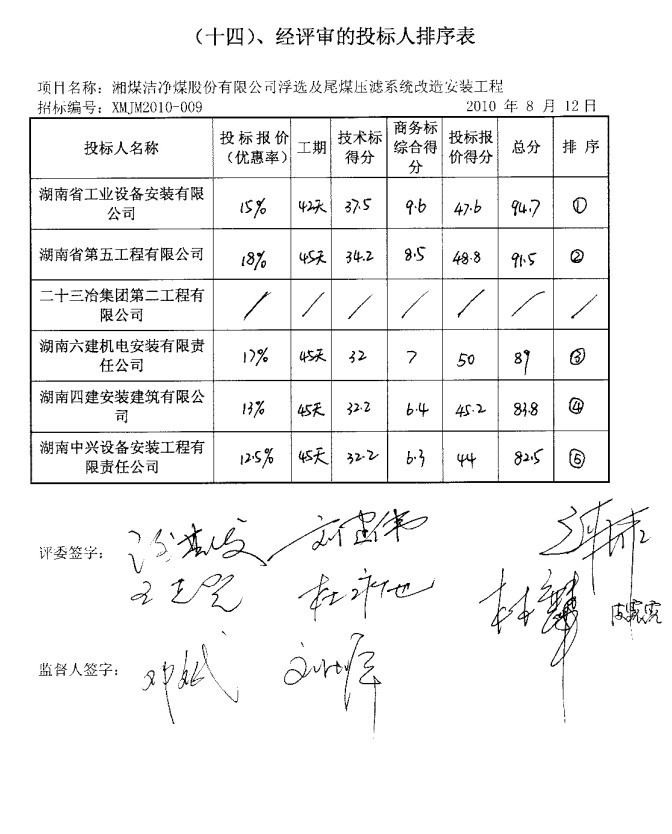 （十四）、经评审的投标人排序表
项目名称：湘煤洁净煤股份有限公司浮选及尾煤压滤系统改造安装工程
招标编号：XMJM2010-009 2010 年 8 月 12日
投标人名称 投标报价（优惠率） 工期 技术标得分 商务标综合得分 投标报价得分 总分 排 序
湖南省工业设备安装有限公司 15% 42天 37.5 9.6 47.6 94.7 ①
湖南省第五工程有限公司 18% 45天 34.2 8.5 48.8 91.5 ②
二十三冶集团第二工程有限公司 / / / / / / /
湖南六建机电安装有限责任公司 17% 45天 32 7 50 89 ③
湖南四建安装建筑有限公司 13% 45天 32.2 6.4 45.2 83.8 ④
湖南中兴设备安装工程有限责任公司 12.5% 45天 32.2 6.3 44 82.5 ⑤
评委签字：
监督人签字：